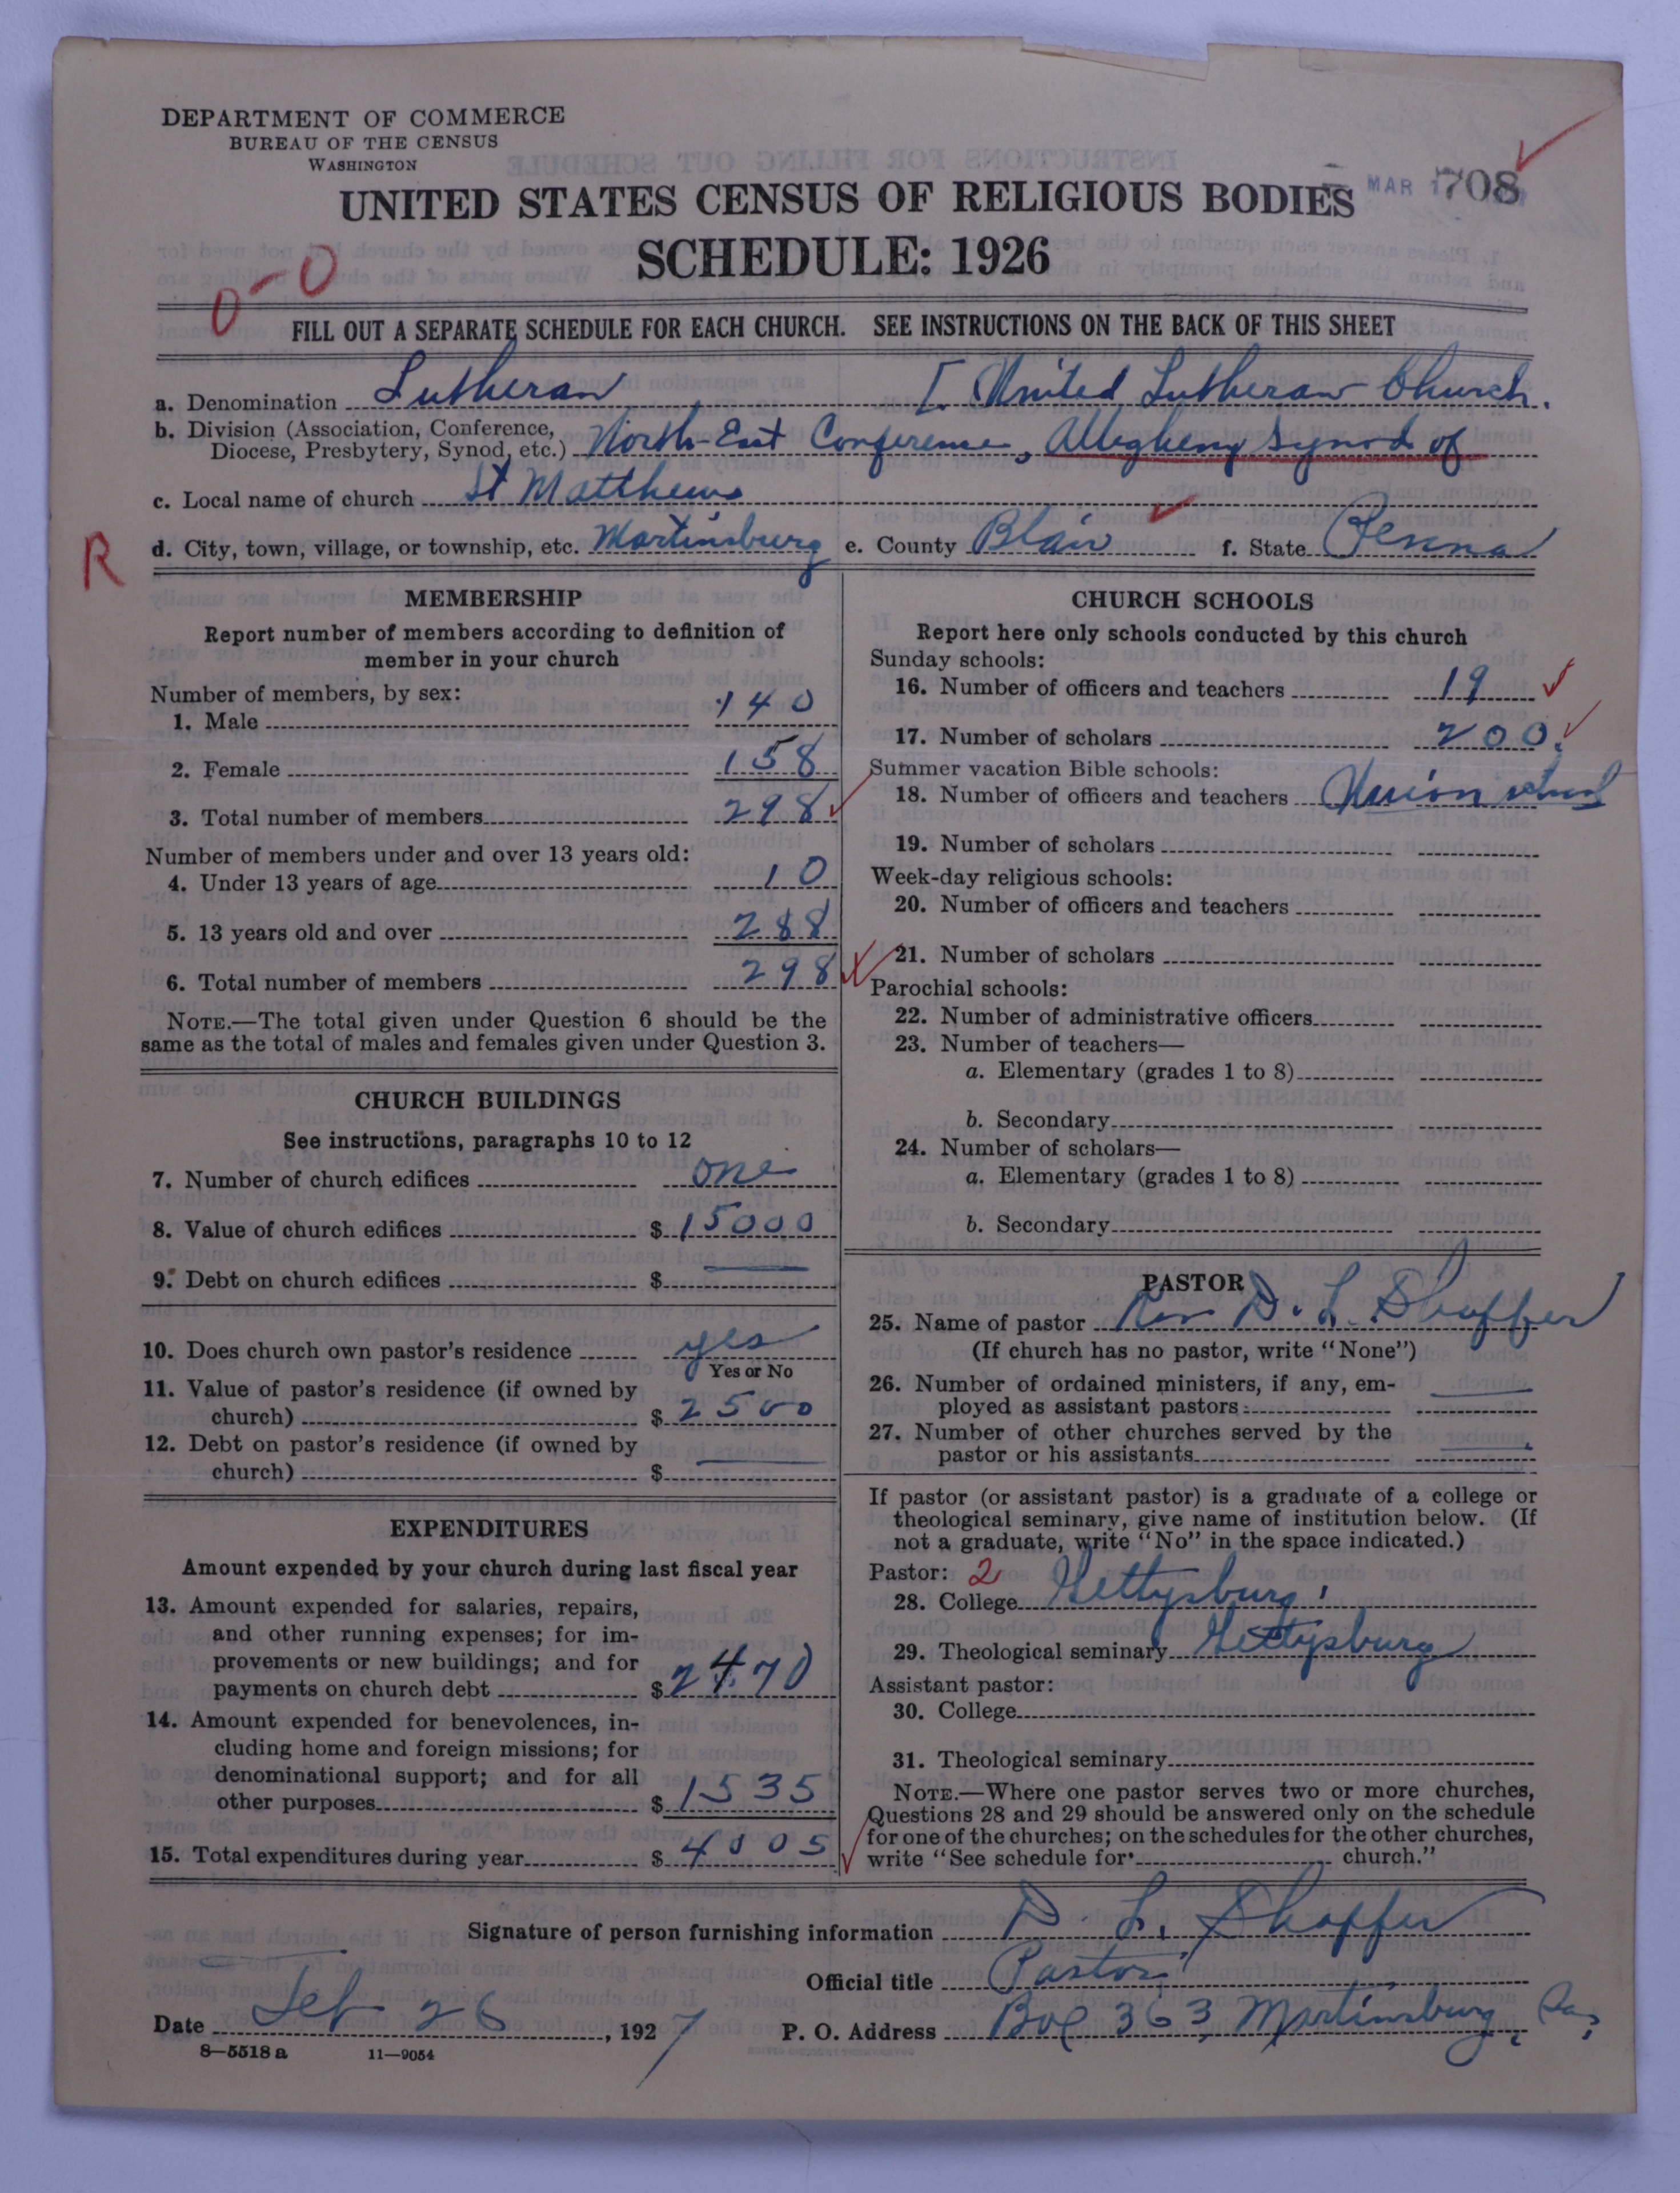 DEPARTMENT OF COMMERCE
BUREAU OF THE CENSUS
WASHINGTON
MAR 1 708
UNITED STATES CENSUS OF RELIGIOUS BODIES
SCHEDULE: 1926
0-0
FILL OUT A SEPARATE SCHEDULE FOR EACH CHURCH. SEE INSTRUCTIONS ON THE BACK OF THIS SHEET
a. Denomination Lutheran [ United Lutheran Church.
b. Division (Association, Conference,
Diocese, Presbytery, Synod, etc.) North-East Conference, Allegheny Synod of
c. Local name of church St Matthews
R
d. City, town, village, or township, etc. Martinsburg e. County Blair f. State Penna
MEMBERSHIP
Report number of members according to definition of
member in your church
Number of members, by sex:
1. Male 140
2. Female 158
3. Total number of members 298
Number of members under and over 13 years old:
4. Under 13 years of age 10
5. 13 years old and over 288
6. Total number of members 298
NOTE.—The total given under Question 6 should be the
same as the total of males and females given under Question 3.
CHURCH BUILDINGS
See instructions, paragraphs 10 to 12
7. Number of church edifices one
8. Value of church edifices $ 15000
9. Debt on church edifices $ —
10. Does church own pastor's residence yes
Yes or No
11. Value of pastor's residence (if owned by
church) $ 2500
12. Debt on pastor's residence (if owned by
church) $ —
EXPENDITURES
Amount expended by your church during last fiscal year
13. Amount expended for salaries, repairs,
and other running expenses; for im-
provements or new buildings; and for
payments on church debt $ 2470
14. Amount expended for benevolences, in-
cluding home and foreign missions; for
denominational support; and for all
other purposes $ 1535
15. Total expenditures during year $ 4005
CHURCH SCHOOLS
Report here only schools conducted by this church
Sunday schools:
16. Number of officers and teachers 19
17. Number of scholars 200.
Summer vacation Bible schools:
18. Number of officers and teachers Union school
19. Number of scholars
Week-day religious schools:
20. Number of officers and teachers
21. Number of scholars
Parochial schools:
22. Number of administrative officers
23. Number of teachers—
a. Elementary (grades 1 to 8)
b. Secondary
24. Number of scholars—
a. Elementary (grades 1 to 8)
b. Secondary
PASTOR
25. Name of pastor Rev D. L. Shaffer
(If church has no pastor, write "None")
26. Number of ordained ministers, if any, em-
ployed as assistant pastors —
27. Number of other churches served by the
pastor or his assistants —
If pastor (or assistant pastor) is a graduate of a college or
theological seminary, give name of institution below. (If
not a graduate, write "No" in the space indicated.)
Pastor: 2
28. College Gettysburg
29. Theological seminary Gettysburg
Assistant pastor:
30. College
31. Theological seminary
NOTE.—Where one pastor serves two or more churches,
Questions 28 and 29 should be answered only on the schedule
for one of the churches; on the schedules for the other churches,
write "See schedule for church."
Signature of person furnishing information D. L. Shaffer
Official title Pastor
Date Feb 26, 1927 P. O. Address Box 363, Martinsburg, Pa,
8—5518 a 11—9054